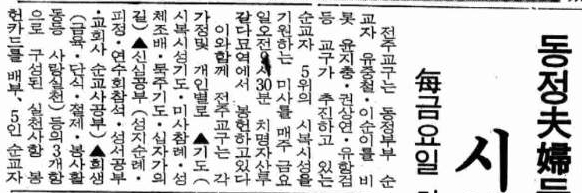 동정夫婦
시
每금요일
전주교구는 동정부부 순
교자 유중철·이순이를 비
롯 윤지충·권상연·유항검
등 교구가 추진하고 있는
순교자 5위의 시복시성를
기원하는 미사를 매주 금요
일오전 시30분 치명자산루
갈다묘역에서 봉헌하고있다
이와함께 전주교구는 각
가정및 개인별로 ▲기도(
시복시성기도·미사참례·성
체조배·묵주기도·십자가의
길) ▲신심공부(성지순례·
피정·연수회참석·성서공부
·교회사 순교사공부) ▲희생
(금육·단식·절제·봉사활
동등 사랑실천) 등의 3개항
으로 구성된 실천사항 봉
헌카드를 배부, 5인 순교자